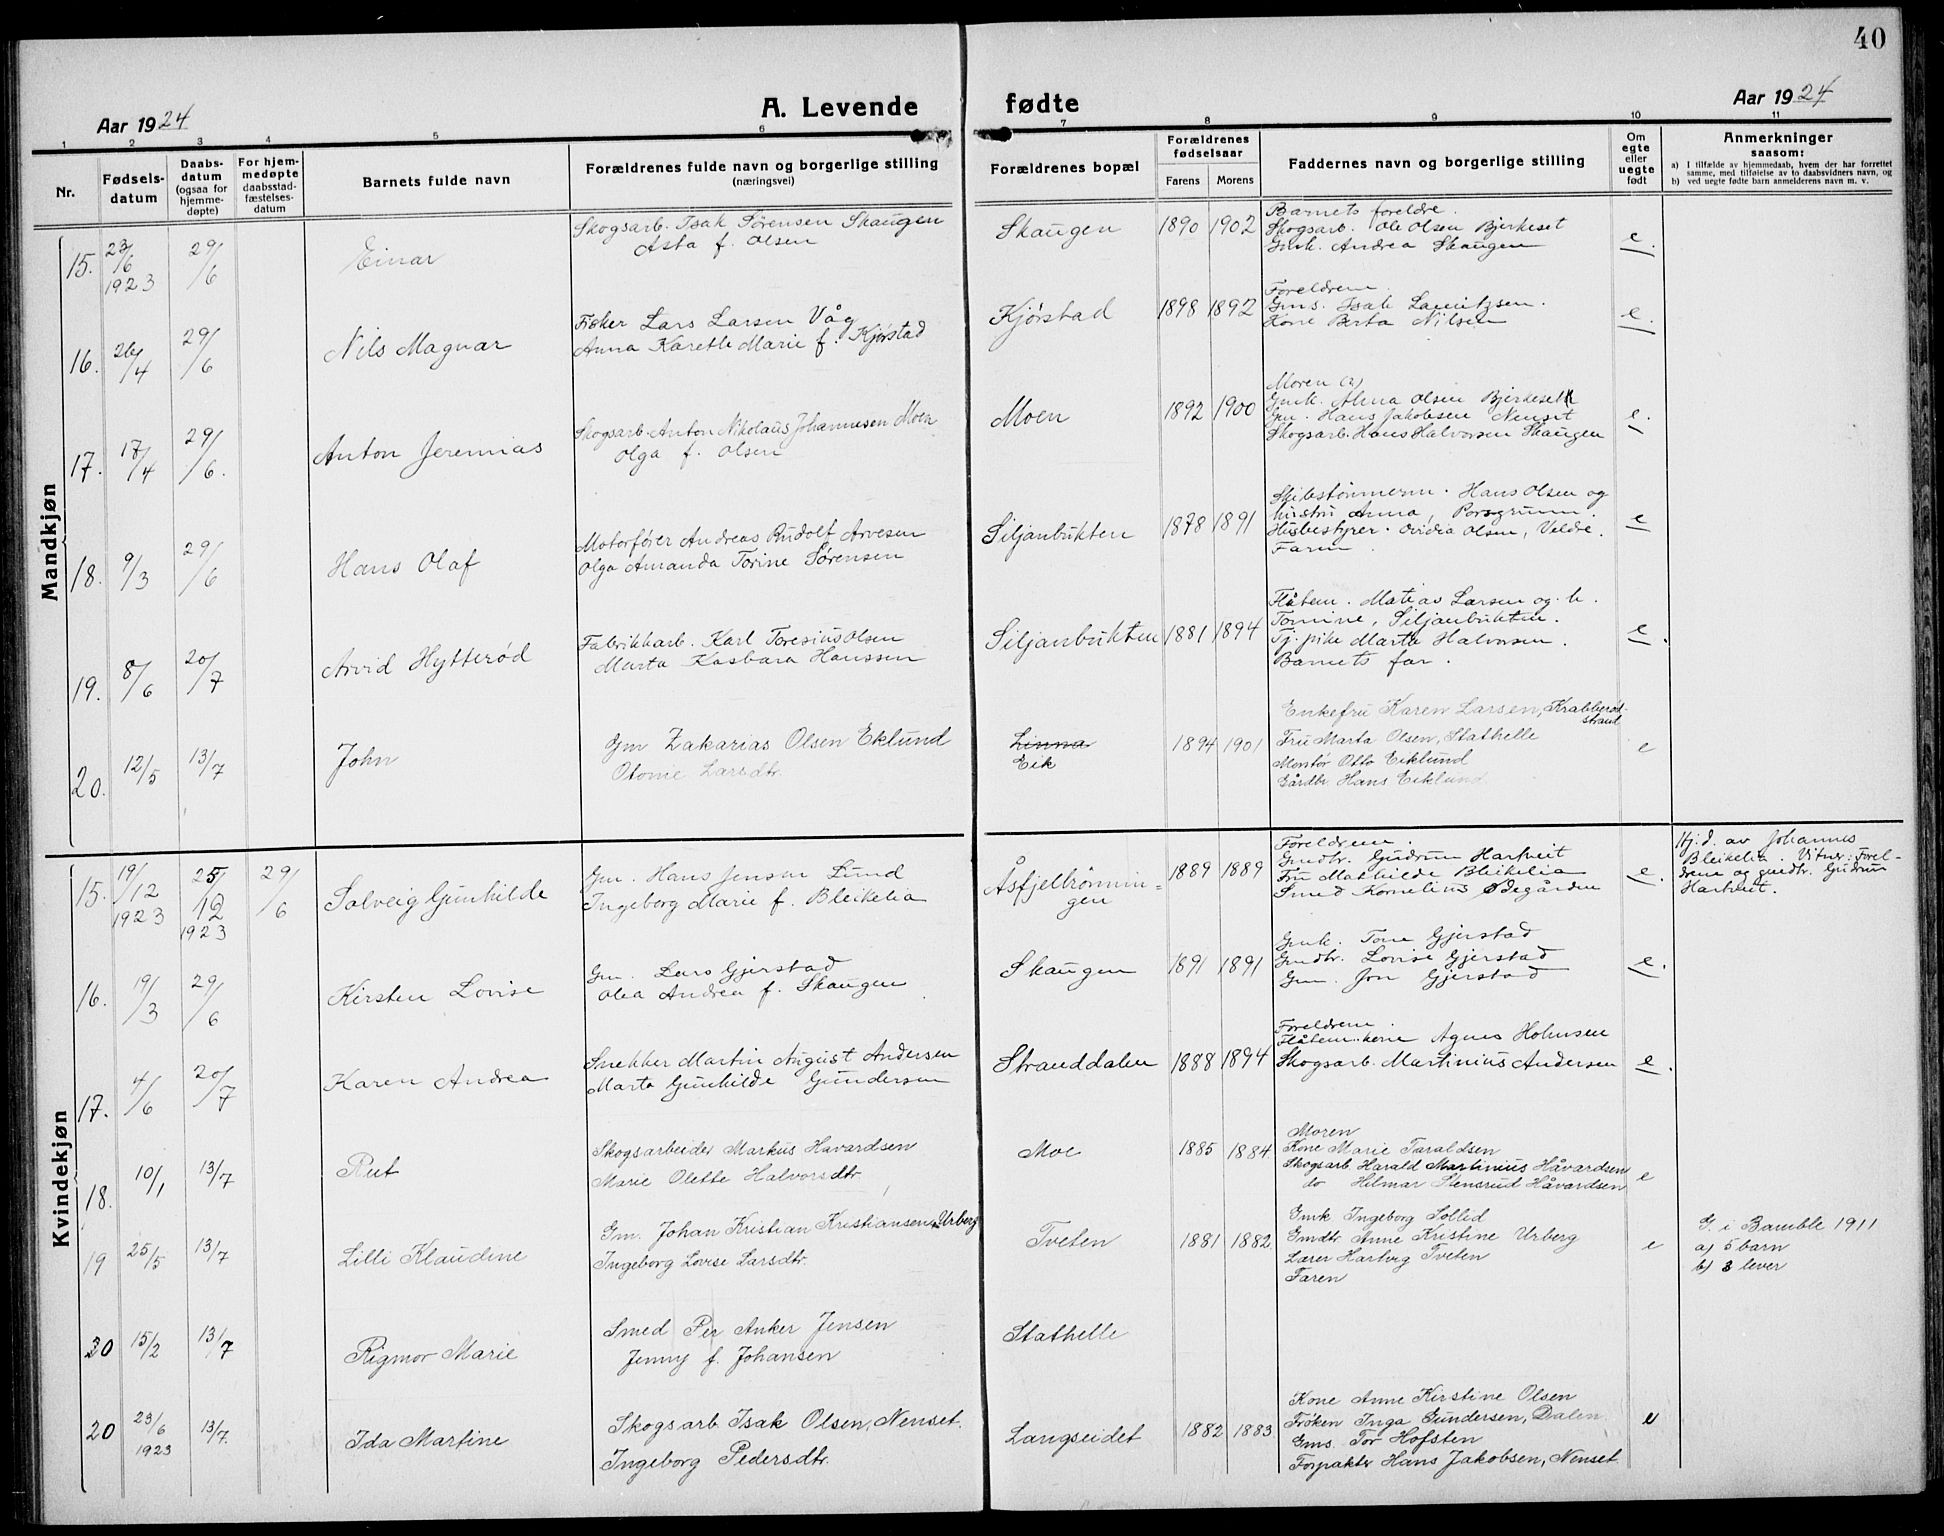 40
Aar 1924
A. Levende fødte
Aar 1924
1 2 3 4 5 6 7 8 9 10 11
Nr.
Fødsels-
datum
Daabs-
datum
(ogsaa for
hjemme-
døpte)
For hjem-
medøpte
daabsstad-
fæstelses-
datum
Barnets fulde navn
Forældrenes fulde navn og borgerlige stilling
(næringsvei)
Forældrenes bopæl
Forældrenes
fødselsaar
Farens Morens
Faddernes navn og borgerlige stilling
Om
egte
eller
uegte
født
Anmerkninger
saasom:
a) I tilfælde av hjemmedaab, hvem der har forrettet
samme, med tilføielse av to daabsvidners navn, og
b) ved uegte fødte barn anmelderens navn m. v.
Mandkjøn
15. 23/6 1923 29/6 Einar
Skogsarb. Isak Sørensen Skaugen
Asta f. Olsen
Skaugen 1890 1902
Barnets foreldre.
Skogsarb. Ole Olsen Bjerkeset
Gmk. Andrea Skaugen
e.
16. 26/4 29/6 Nils Magnar
Fisker Lars Larsen Våg
Anna Karethe Marie f. Kjørstad
Kjørstad 1898 1892
Foreldrene.
Gms. Isak Lauritzsen.
Kone Berta Nilsen
e.
17. 17/4 29/6. Anton Jeremias
Skogsarb. Anton Nikolaus Johannesen Moen
Olga f. Olsen
Moen 1892 1900
Moren (2)
Gmk. Anna Olsen Bjerkeset
Gm. Hans Jakobsen Nenset
Skogsarb. Hans Halvorsen Skaugen
e.
18. 9/3 29/6 Hans Olaf
Motorfører Andreas Rudolf Arvesen
Olga Amanda Torine Sørensen
Siljanbukten 1878 1891
Skibstømmerm. Hans Olsen og
hustru Anna, Porsgrunn.
Husbestyrer. Ovidia Olsen, Veldre.
Faren.
e
19. 8/6 20/7 Arvid Hytterød
Fabrikkarb. Karl Toresius Olsen
Marta Kasbara Hanssen
Siljanbukten 1881 1894
Flåtem. Matias Larsen og h.
Tomine, Siljanbukten.
Tj. pike Marta Halvorsen.
Barnets far.
e.
20. 12/5 13/7 John
Gm Zakarias Olsen Eklund
Otonie Larsdtr.
Linna
Eik
1894 1901
Enkefru Karen Larsen, Krabberød-
strand
Fru Marta Olsen, Stathelle
Montør Otto Eiklund
Gårdbr. Hans Eiklund
e
Kvindekjøn
15. 19/12 1923 25/12 1923 29/6 Solveig Gunhilde
Gm. Hans Jensen Lund
Ingeborg Marie f. Bleikelia
Åsfjelbrønnin-
gen
1889 1889
Foreldrene.
Gmdtr. Gudrun Hartveit
Fru Mathilde Bleikelia
Smed Kornelius Ødegården
e.
Hj.d. av Johannes
Bleikelia. Vitner: Forel-
drene og gmdtr. Gudrun
Hartveit.
16. 19/3 29/6 Kirsten Lovise
Gm. Lars Gjerstad
Olea Andrea f. Skaugen
Skaugen 1891 1891
Gmk. Tone Gjerstad
Gmdtr. Lovise Gjerstad
Gm. Jon Gjerstad
e.
17. 4/6 20/7 Karen Andrea
Snekker Martin August Andersen
Marta Gunhilde Gundersen
Stranddalen 1888 1894
Foreldrene.
Flåtem. kone Agnes Holmsen
Skogsarb. Martinius Andersen
e.
18. 10/1 13/7 Rut
Skogsarbeider Markus Havardsen
Marie Olette Halvorsdtr.
Moe 1885 1884
Moren
Kone Marie Taraldsen
Skogsarb Harald Martinius Håvardsen
do Hilmar Stensrud Håvardsen
e
19 25/5 13/7 Lilli Klaudine
Gm. Johan Kristian Kristiansen Urberg
Ingeborg Lovise Larsdtr.
Tveten 1881 1882
Gmk Ingeborg Sollid
Gmdtr. Anne Kristine Urberg
Lærer Hartvig Tveten
Faren
e
G. i Bamble 1911
a) 5 barn
b) 3 lever
20 15/2 13/7 Rigmor Marie
Smed Per Anker Jensen
Jenny f. Johansen
Stathelle
20 23/6 1923 13/7. Ida Martine
Skogsarb Isak Olsen, Nenset.
Ingeborg Pedersdtr.
Langseidet 1882 1883
Kone Anne Kirstine Olsen
Frøken Inga Gundersen, Dalen
Gms. Tor Hofsten
Forpakter Hans Jakobsen, Nenset
e